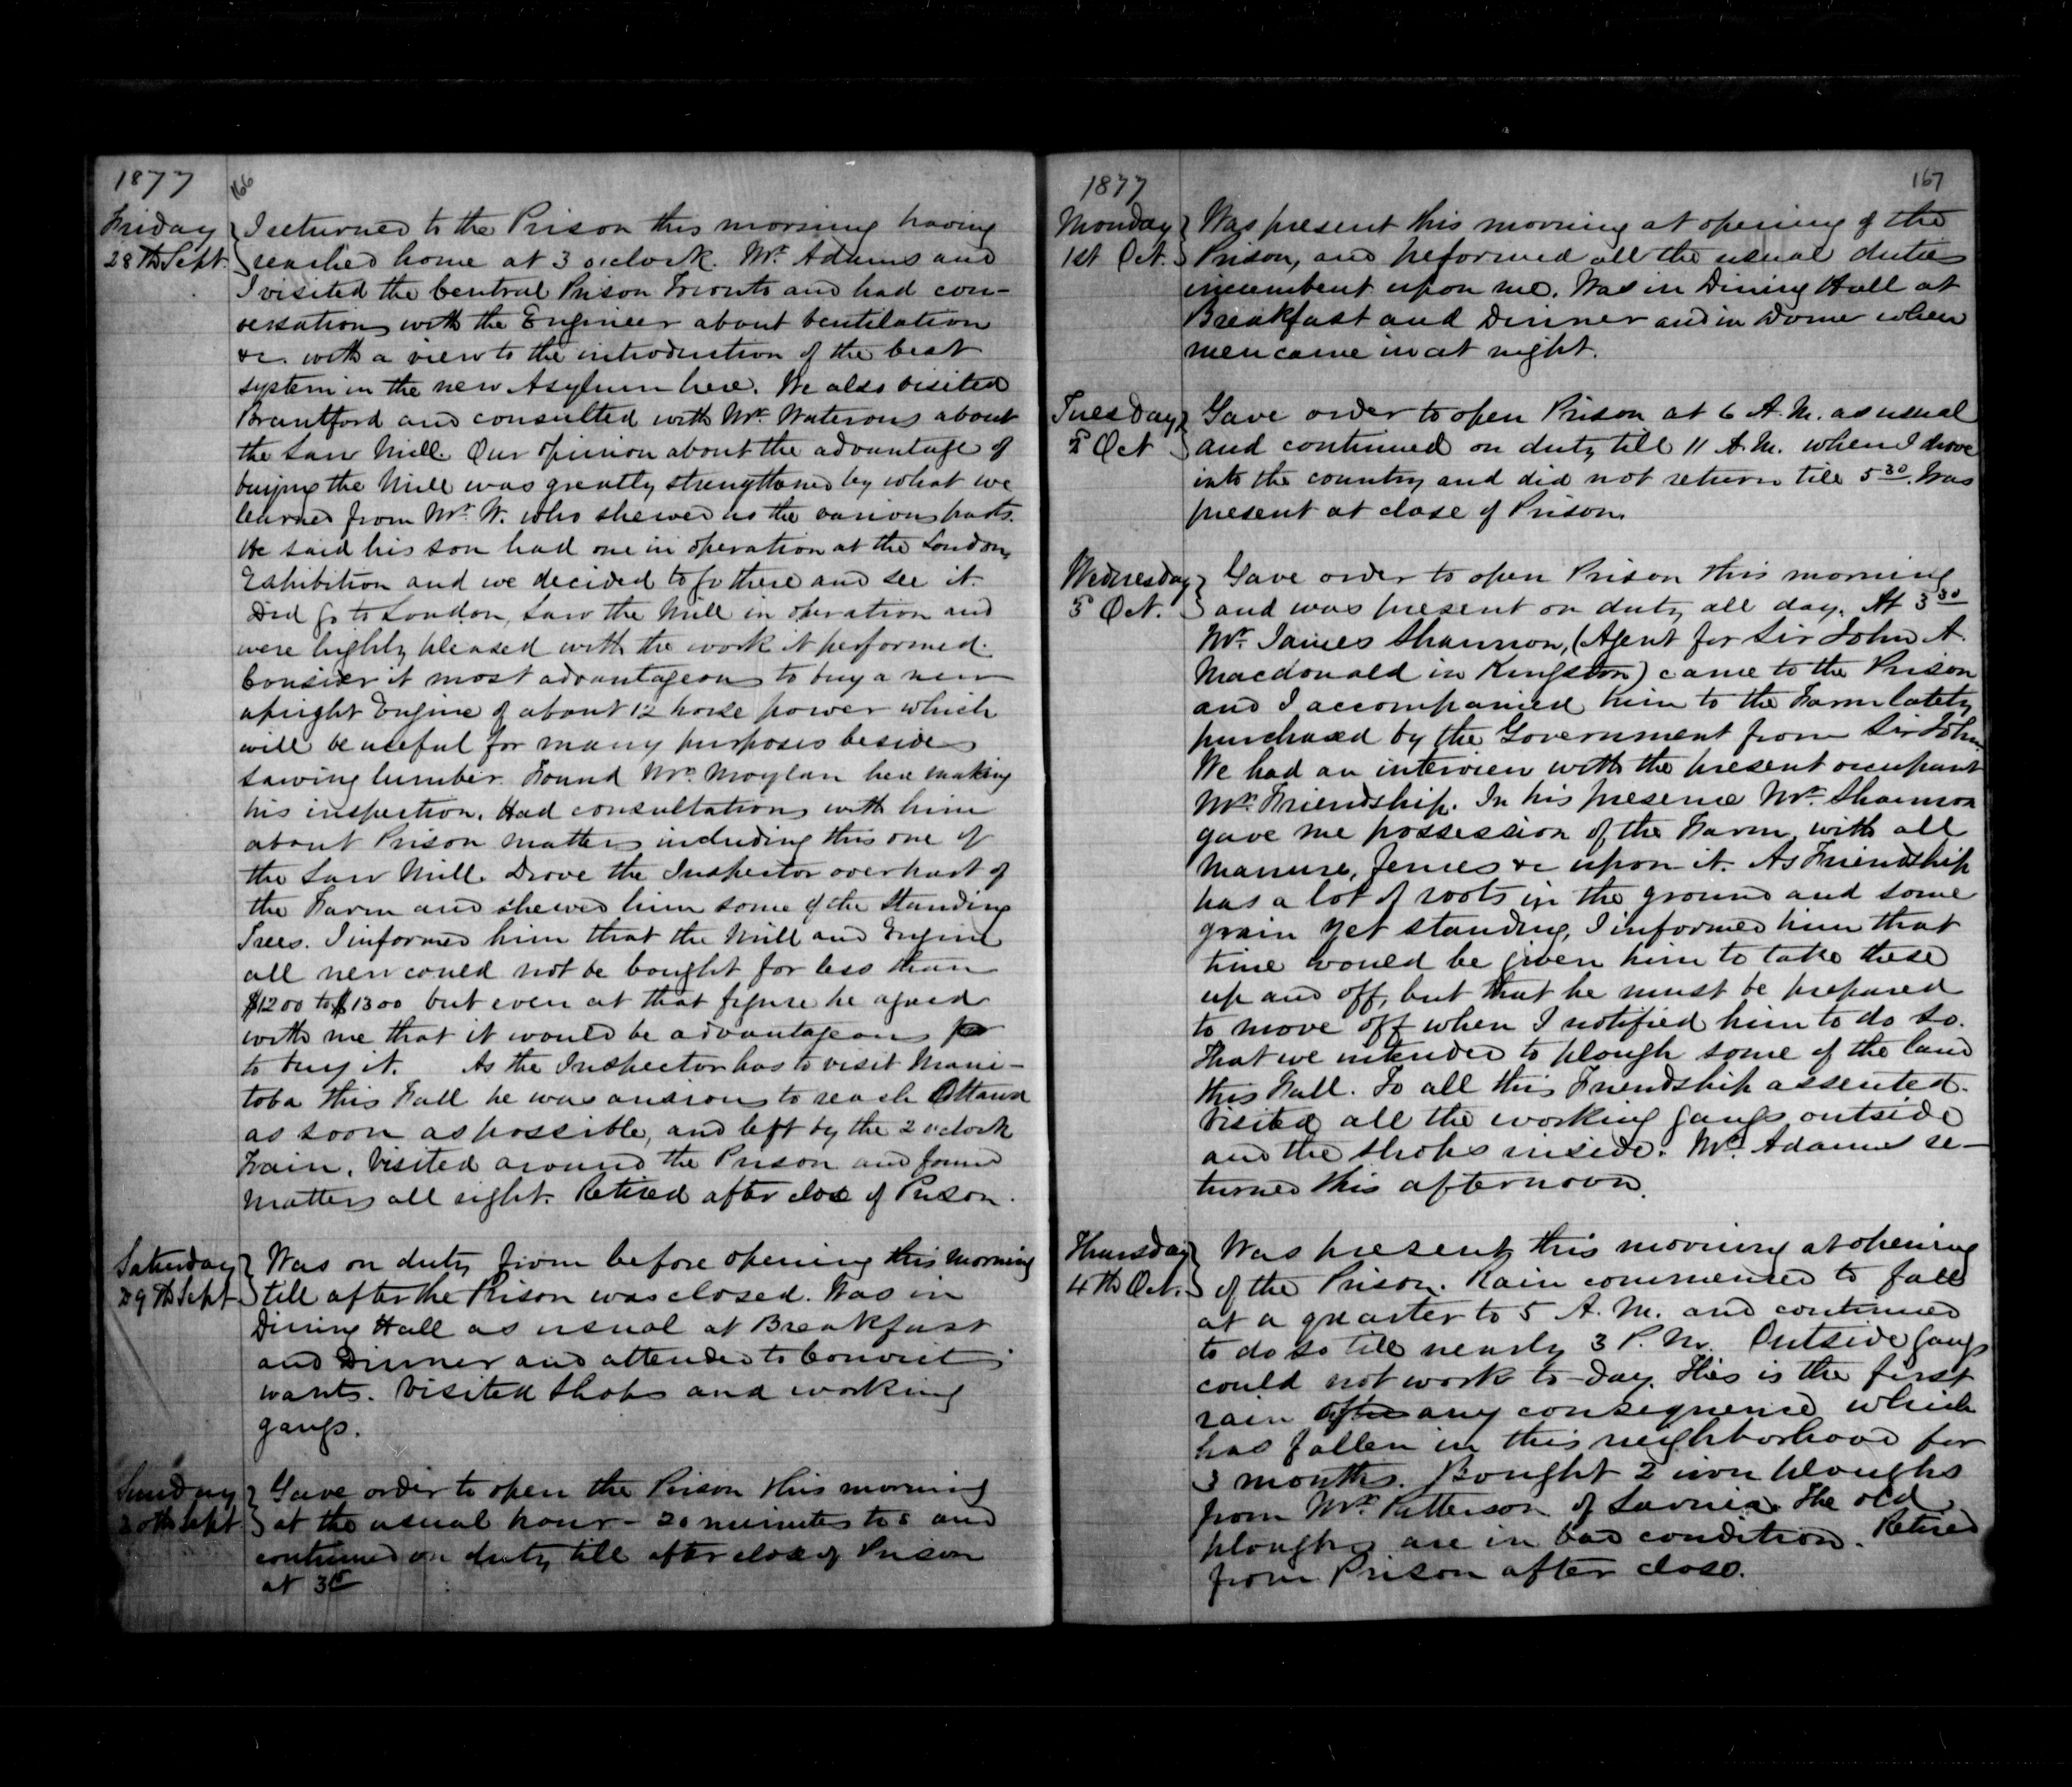 1877
166
Friday
28th Sept.
I returned to the Prison this morning having
reached home at 3 oclock. Mr. Adams and
I visited the Central Prison Toronto and had con-
versation with the Engineer about ventilation
&c. with a view to the introduction of the best
system in the new Asylum here. We also visited
Brantford and consulted with Mr. Waterous about
the Saw Mill. Our opinion about the advantage of
buying the Mill was greatly strengthened by what we
learned from Mr. W. who shewed us the various parts.
He said his son had one in operation at the London
Exhibition and we decided to go there and see it.
Did go to London, saw the Mill in operation and
were highly pleased with the work it performed.
Consider it most advantageous to buy a new
upright Engine of about 12 horse power which
will be useful for many purposes beside
sawing lumber. Found Mr. Moylan here making
his inspection. Had consultations with him
about Prison matters including this one of
the Saw Mill. Drove the Inspector over part of
the Farm and shewed him some of the standing
Trees. I informed him that the Mill and Engine
all new could not be bought for less than
$1200 to $1300 but even at that figure he agreed
with me that it would be advantageous
to buy it. As the Inspector has to visit Mani-
toba this Fall he was anxious to reach Ottawa
as soon as possible, and left by the 2 oclock
Train. Visited around the Prison and found
matters all right. Retired after close of Prison.
Saturday
29th Sept
Was on duty from before opening this morning
till after the Prison was closed. Was in
Dining Hall as usual at Breakfast
and Dinner and attended to Convicts
wants. Visited Shops and working
gangs.
Sunday
30th Sept
Gave order to open the Prison this morning
at the usual hour - 20 minutes to 8 and
continued on duty till after close of Prison
at 3
1877
167
Monday
1st Oct.
Was present this morning at opening of the
Prison, and peformed all the usual duties
incumbent upon me. Was in Dining Hall at
Breakfast and Dinner and in Dome when
men came in at night.
Tuesday
2 Oct
Gave order to open Prison at 6 A.M. as usual
and continued on duty till 11 A.M. when I drove
into the country and did not return till 5 30. Was
present at close of Prison.
Wednesday
3 Oct.
Gave order to open Prison this morning
and was present on duty all day. At 3 30
Mr. James Shannon, (Agent for Sir John A.
Macdonald in Kingston) came to the Prison
and I accompanied him to the Farm lately
purchased by the Government from Sir John.
We had an interview with the present occupant
Mr. Friendship. In his presence Mr. Shannon
gave me possession of the Farm, with all
manure, fences &c upon it. As Friendship
has a lot of roots in the ground and some
grain yet standing, I informed him that
time would be given him to take these
up and off, but that he must be prepared
to move off when I notified him to do so.
That we intended to plough some of the land
this Fall. To all this Friendship assented.
Visited all the working gangs outside
and the Shops inside. Mr. Adams re-
turned this afternoon.
Thursday
4th Oct.
Was present, this morning at opening
of the Prison. Rain commenced to fall
at a quarter to 5 A.M. and continued
to do so till nearly 3 P.M. Outside gangs
could not work to-day. This is the first
rain of any consequence which
has fallen in this neighborhood for
3 months. Bought 2 iron ploughs
from Mr. Patterson of Sarnia. The old
ploughs are in bad condition. Retired
from Prison after close.